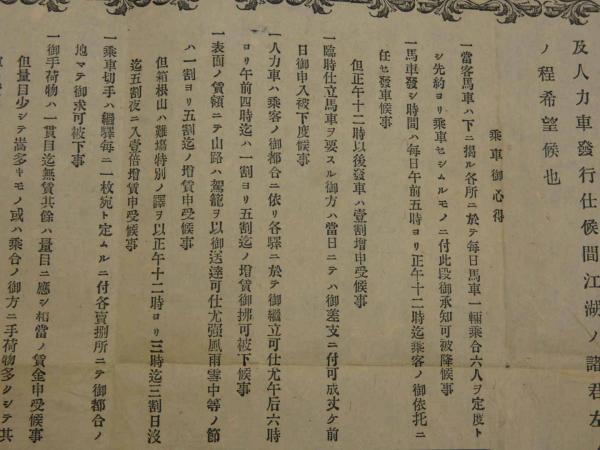 及人力車發行仕候間江湖ノ諸君左
ノ程希望候也
乘車御心得
一當客馬車ハ下ニ揭ル各所ニ於テ每日馬車一輛乘合六人ヲ定度ト
シ先約ヨリ乘車セシムルモノニ付此段御承知可被降候事
一馬車發シ時間ハ每日午前五時ヨリ正午十二時迄乘客ノ御依托ニ
任セ發車候事
但正午十二時以後發車ハ壹割增申受候事
一臨時仕立馬車ヲ要スル御方ハ當日ニテハ御差支ニ付可成丈ケ前
日御申入被下度候事
一人力車ハ乘客ノ御都合ニ依リ各驛ニ於テ御繼立可仕尤午后六時
ヨリ午前四時迄ハ一割ヨリ五割迄ノ增賃御拂可被下候事
一表面ノ賃領ニテ山路ハ駕籠ヲ以御送達可仕尤强風雨雪中等ノ節
ハ一割ヨリ五割迄ノ增賃申受候事
但箱根山ハ難場特別ノ譯ヲ以正午十二時ヨリ三時迄三割日沒
迄五割夜ニ入壹倍增賃申受候事
一乘車切手ハ繼驛每ニ一枚宛ト定ムルニ付各賣捌所ニテ御都合ノ
地マテ御求可被下事
一御手荷物ハ一貫目迄無賃其餘ハ量目ニ應シ相當ノ賃金申受候事
但量目少シテ嵩多キモノ或ハ乘合ノ御方ニ手荷物多クシテ其